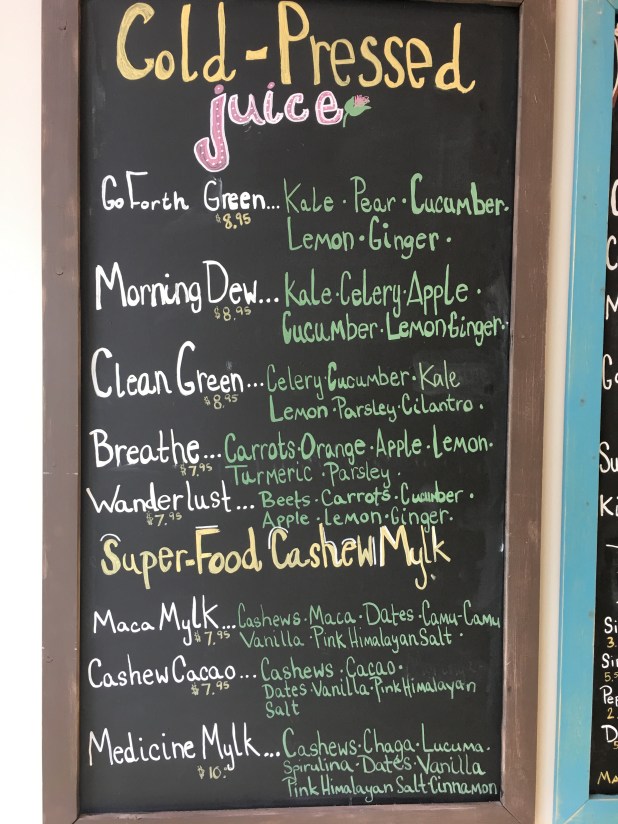 Cold-Pressed
juice
Go Forth Green... Kale · Pear · Cucumber·
$8.95
Lemon · Ginger ·
Morning Dew... Kale · Celery · Apple ·
$8.95
Cucumber · Lemon Ginger ·
Clean Green... Celery · Cucumber · Kale
$8.95
Lemon · Parsley · Cilantro ·
Breathe... Carrots · Orange · Apple · Lemon ·
$7.95
Turmeric · Parsley ·
Wanderlust... Beets · Carrots · Cucumber ·
$7.95
Apple · Lemon · Ginger ·
Super-Food Cashew Mylk
Maca Mylk... Cashews · Maca · Dates · Camu-Camu
$7.95
Vanilla · Pink Himalayan Salt ·
Cashew Cacao... Cashews · Cacao ·
$7.95
Dates · Vanilla · Pink Himalayan
Salt
Medicine Mylk... Cashews · Chaga · Lucuma ·
$10.
Spirulina · Dates · Vanilla
Pink Himalayan Salt · Cinnamon